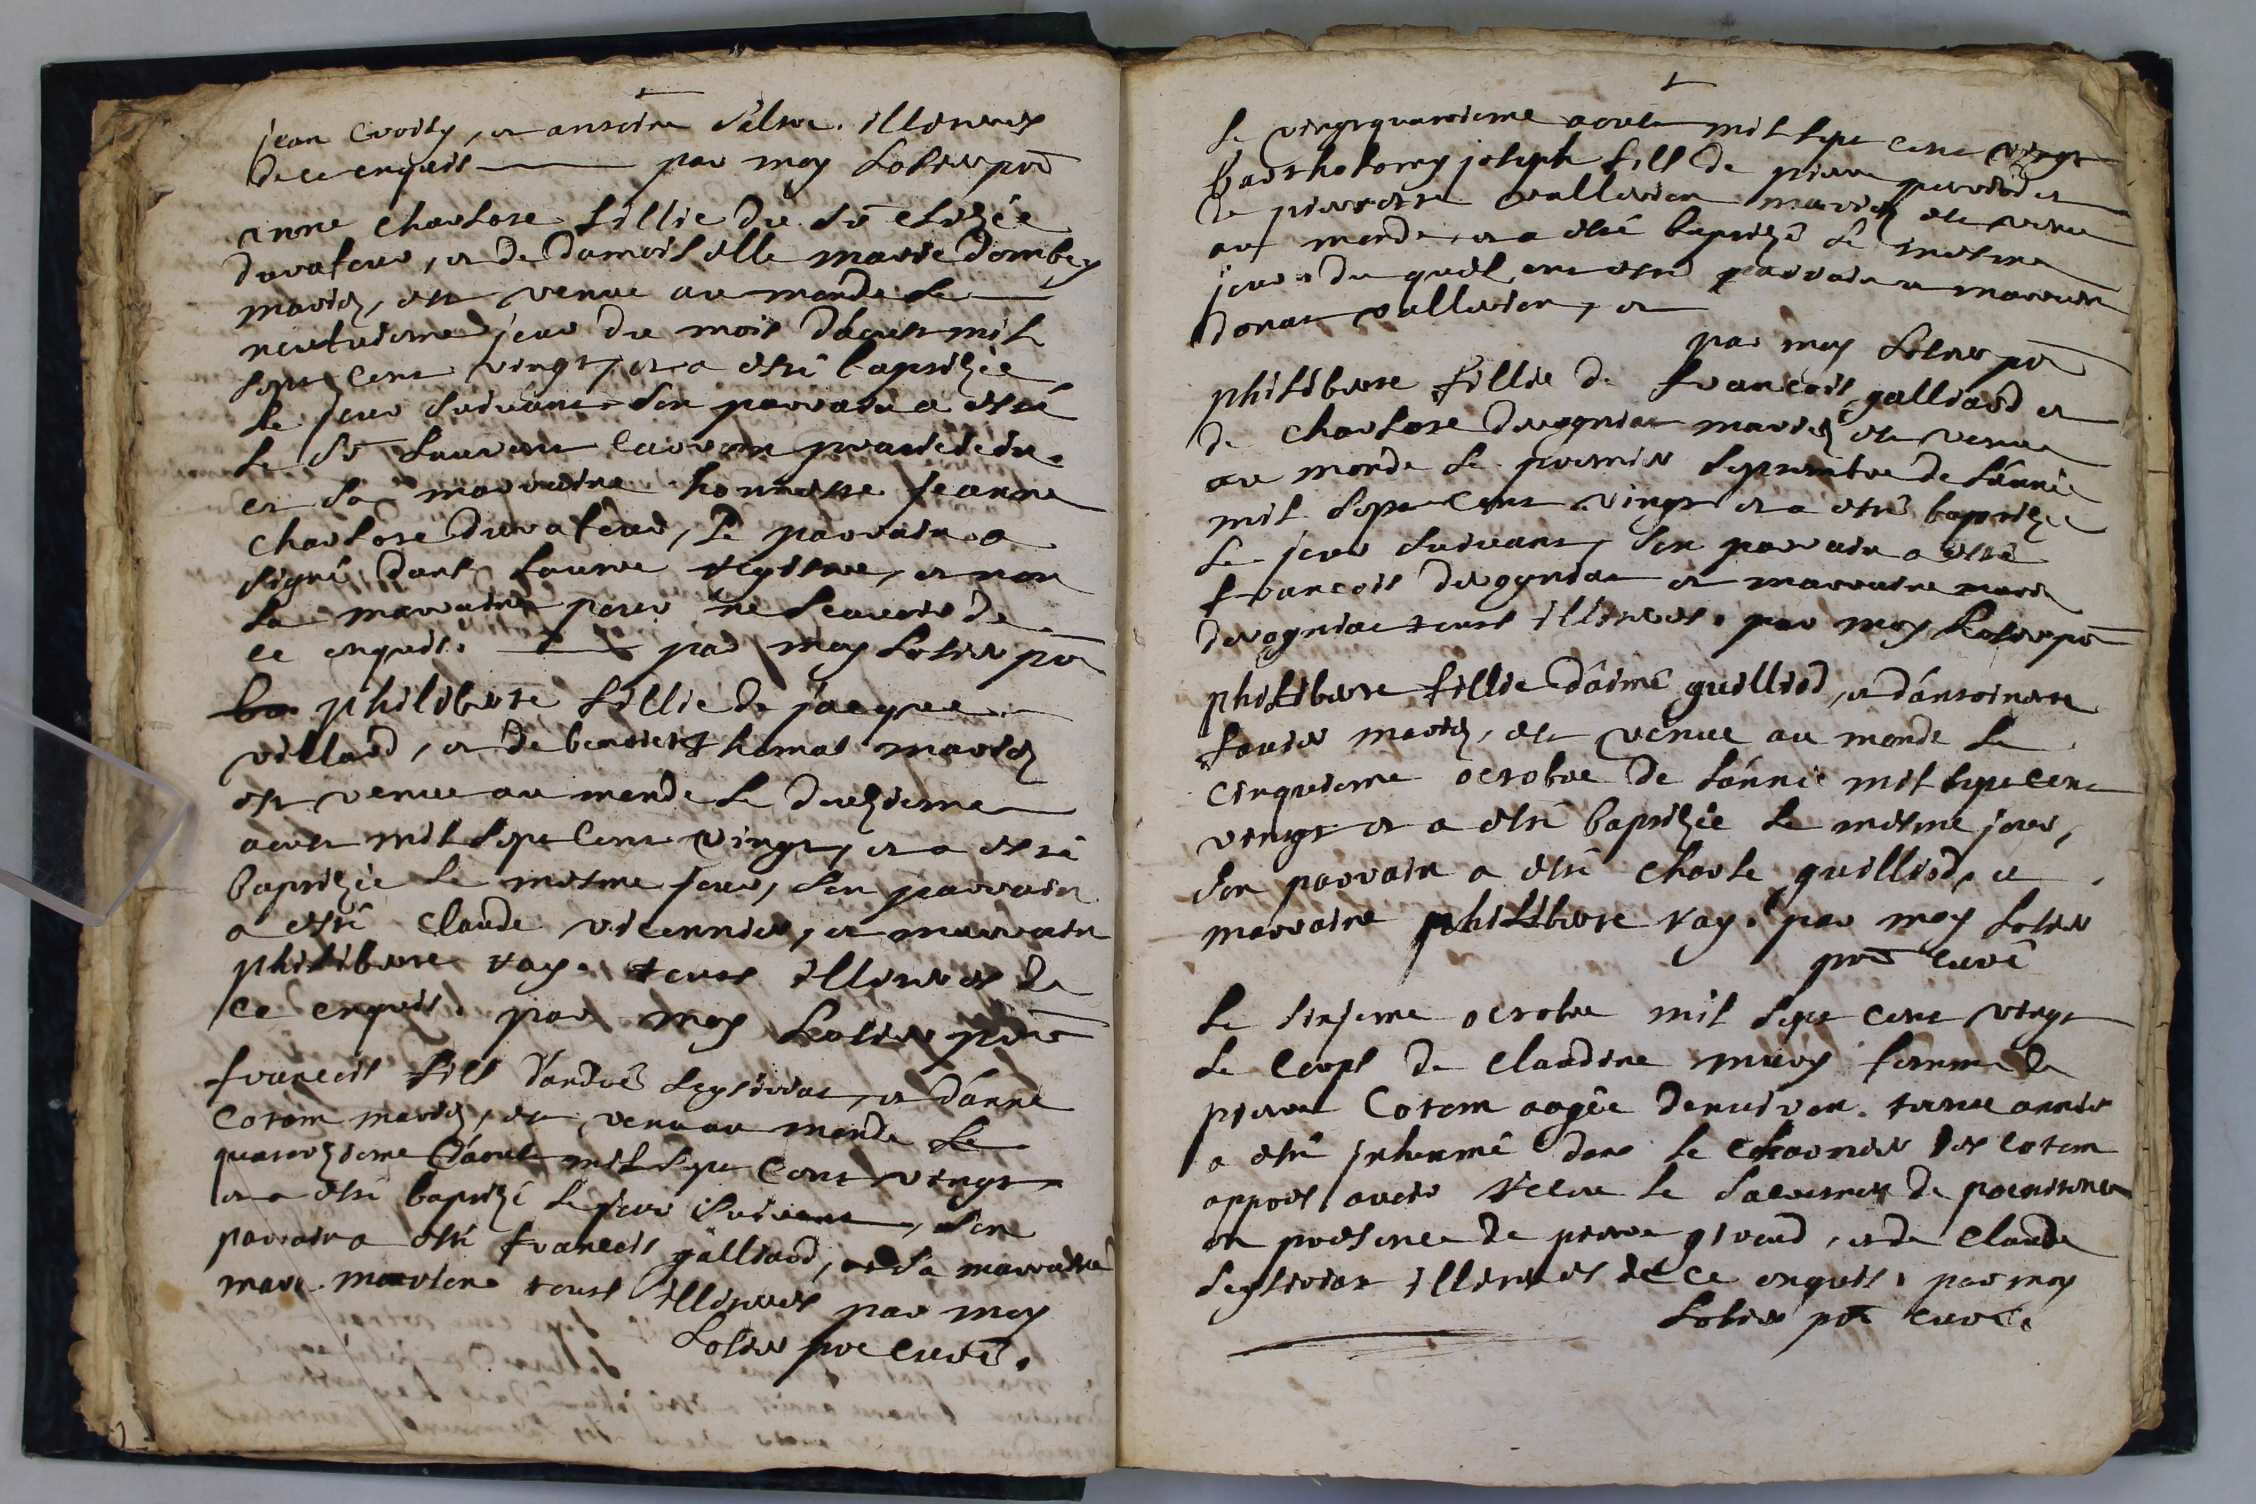 jean et antoine illiteres
de ce enquis par moy Lotier pre
anne charlote fillie du sr elizée
duvaleur, et de damoiselle marie dombey
mariez, est venue au monde le
neufvieme jour du mois d'aoust mil
sept cent vingt, et a esté baptizée
le jour suivant son parrain a esté
le sr laurent
et sa marraine honneste jeanne
charlote duvaleur, le parrain a
signé dans l'autre regitre, et non
la marraine pour ne scavoir de
ce enquis. par moy Lotier pre
philiberte fillie de jacque
villard, et de benoite thomas mariez
est venue au monde le douzieme
aoust mil sept cent vingt, et a esté
baptizée le mesme jour, son parrain
a esté claude vicennier, et marraine
philiberte ray. tous illiteres de
ce enquis. par moy Lotier pre
francois fils d'andré legtiviat, et d'anne
cotam mariez, est venu au monde le
quatorzieme d'aoust mil sept cent vingt
et a esté baptizé le jour suivant, son
parrain a esté francois galliard, et sa marraine
marie tous illiteres par moy
Lotier pre curé.
le vingtquatrieme aoust mil sept cent vingt
bartholomy joseph fils de pierre et
de pierrette vallerian mariez est venu
au monde, et a esté baptizé le mesme
jour du quel ont esté parrain et marraine
donat vallerian, et
par moy Lotier pre
philiberte fillie de francois galliard et
de charlote duvogniat mariez est venue
au monde le premier septembre de l'année
mil sept cent vingt et a esté baptizée
le jour suivant, son parrain a esté
francois duvogniat et marraine marie
duvogniat tous illiteres. par moy Lotier pre
philiberte fillie d'aimé guilliod, et d'antoinette
mariez, est venue au monde le
cinquieme octobre de l'année mil sept cent
vingt et a esté baptizée le mesme jour,
son parrain a esté charle guilliod, et
marraine philiberte ray. par moy Lotier
pre curé
le sixieme octobre mil sept cent vingt
le corps de claudine femme de
pierre Cotam aagée denuiron trente années
a esté inhumé dans le charnier des cotam
appres avoir receu le sacrement de poenitence
en presence de pierre giroud, et de claude
legtiviat illiteres de ce enquis. par moy
Lotier pre curé.